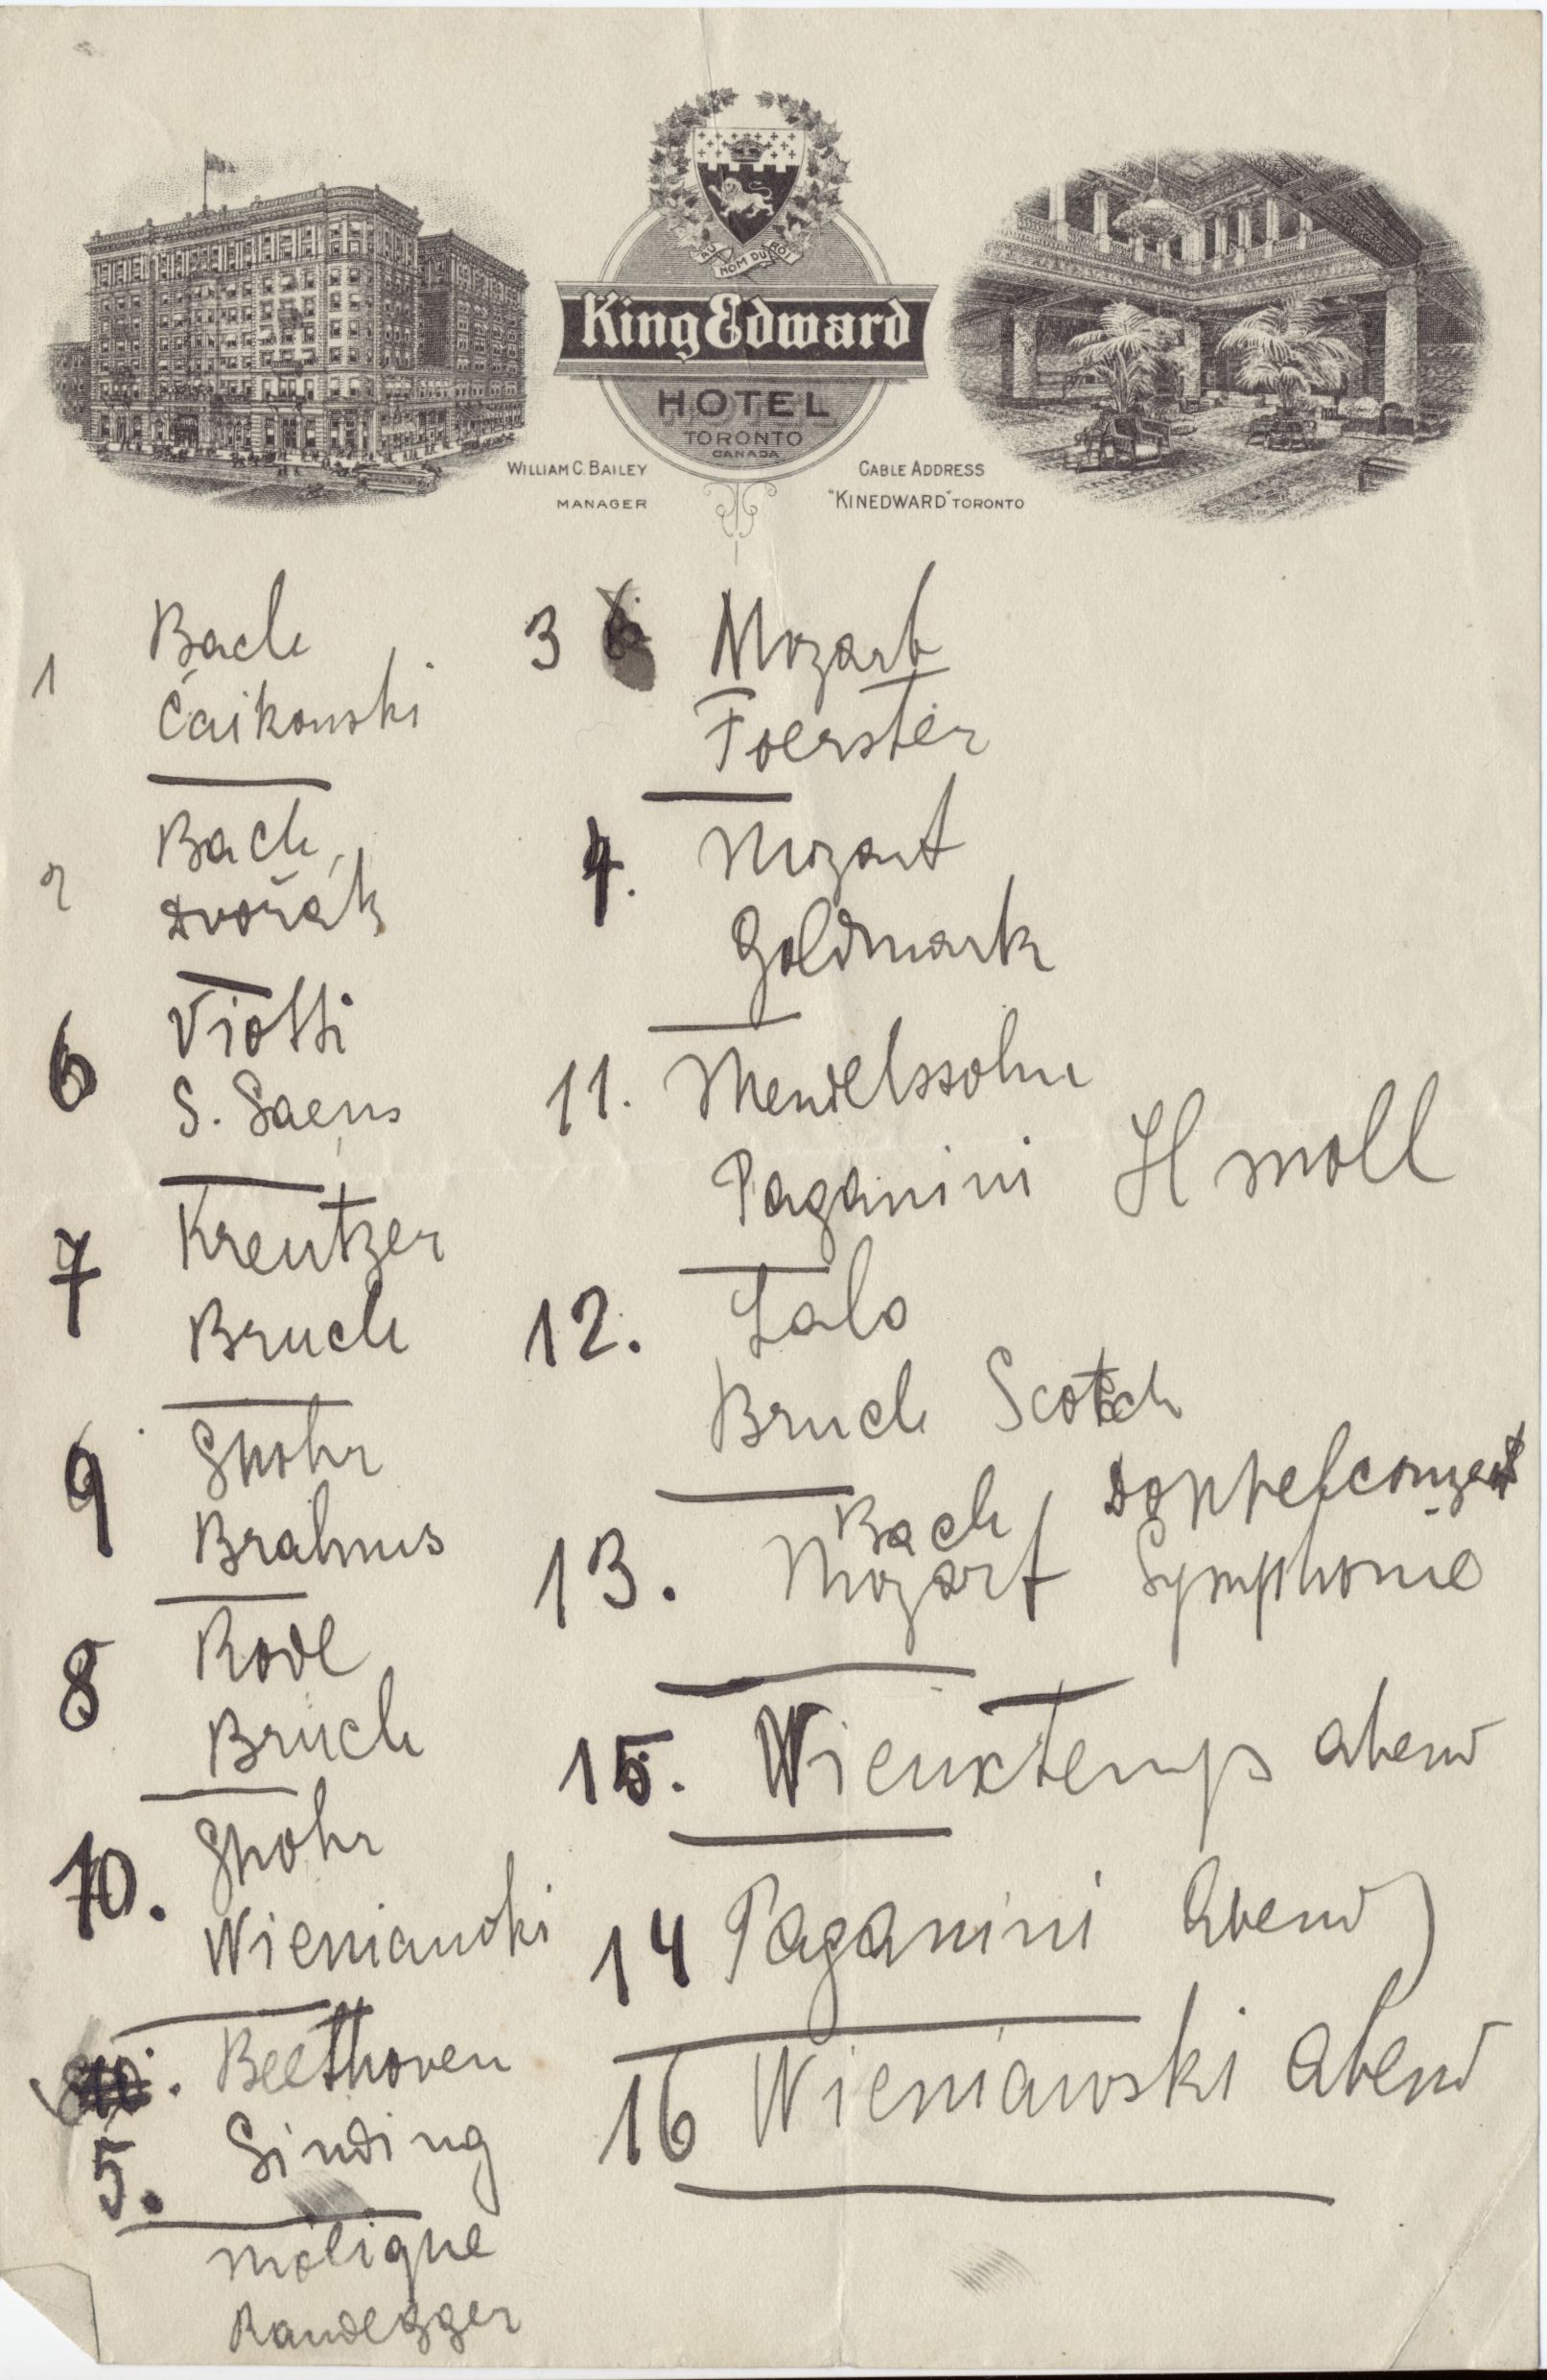 AU NOM DU ROI
King Edward
HOTEL
TORONTO
CANADA
WILLIAM C. BAILEY
MANAGER
CABLE ADDRESS
"KINEDWARD" TORONTO
1 Bach
Čaikowski
2 Bach
Dvořák
6 Viotti
S. Saens
7 Kreutzer
Bruch
9 Spohr
Brahms
8 Rode
Bruch
10. Spohr
Wieniawski
Beethoven
5. Sinding
Molique
Randegger
3 Mozart
Foerster
4. Mozart
Goldmark
11. Mendelssohn
Paganini H moll
12. Lalo
Bruch Scotch
Bach Doppelconzert
13. Mozart Symphonie
15. Vieuxtemps abend
14 Paganini Abend
16 Wieniawski Abend